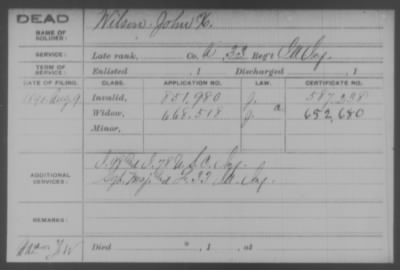 DEAD
NAME OF SOLDIER: Wilson John H.
SERVICE: Late rank, Co. 33 Reg't Inf.
TERM OF SERVICE: Enlisted , 1 Discharged , 1
DATE OF FILING. CLASS. APPLICATION NO. LAW. CERTIFICATE NO.
1890 Aug 9 Invalid, 851,980 J. 587,
Widow, 668,518 J. a 652,680
Minor,
ADDITIONAL SERVICES: I, 78 U.S.C. Inf.
33 Inf.
REMARKS:
Died , 1 , at